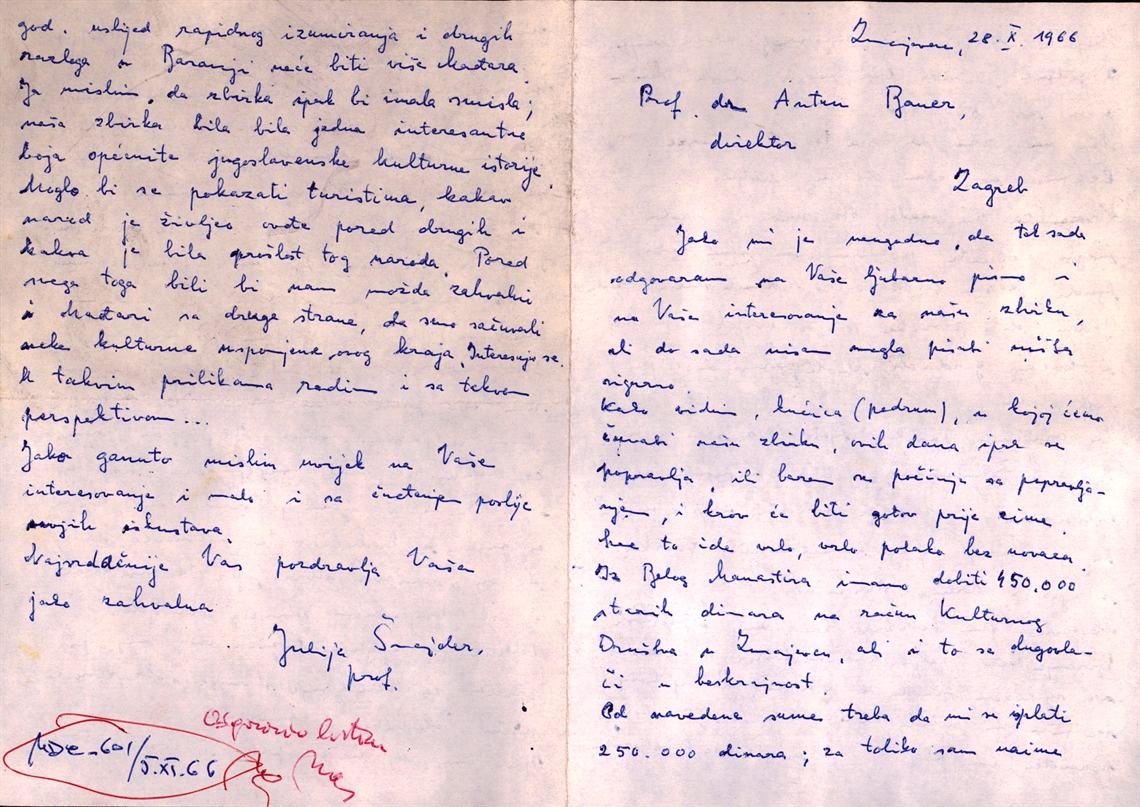 Zmajevac, 28. X. 1966
Prof. dr Antun Bauer,
direktor
Zagreb
Jako mi je neugodno, da tek sada
odgovaram na Vaše ljubazno pismo i
na Vaše interesovanje za našu zbirku,
ali do sada nisam mogla pisati ništa
sigurno.
Kako vidim, kućica (podrum), u kojoj ćemo
čuvati našu zbirku, ovih dana ipak se
popravlja, ili barem se počinje sa popravlja-
njem, i krov će biti gotov prije zime.
Sve to ide vrlo, vrlo polako bez novaca.
Iz Belog Manastira imamo dobiti 450.000
starih dinara na račun Kulturnog
Društva u Zmajevcu, ali i to se dugovla-
či u beskrajnost.
Od navedene sume treba da mi se isplati
250.000 dinara; za toliko sam naime
god. uslijed rapidnog izumiranja i drugih
razloga u Baranji neće biti više Mađara.
Ja mislim, da zbirka ipak bi imala smisla;
naša zbirka bila bila jedna interesantna
boja općenite jugoslavenske kulturne istorije.
Moglo bi se pokazati turistima, kakav
narod je življeo ovde pored drugih i
kakva je bila prošlost tog naroda. Pored
svega toga bili bi nam možda zahvalni
i Mađari sa druge strane, da smo sačuvali
neke kulturne uspomene ovog kraja. Interesuju se.
U takvim prilikama radim i sa takvom
perspektivom...
Jako ganuto mislim uvijek na Vaše
interesovanje i malo i sa čuđenjem poslije
svojih iskustava.
Najsrdačnije Vas pozdravlja Vaša
jako zahvalna
Julija Šnajder,
prof.
MDC-601/5.XI.66